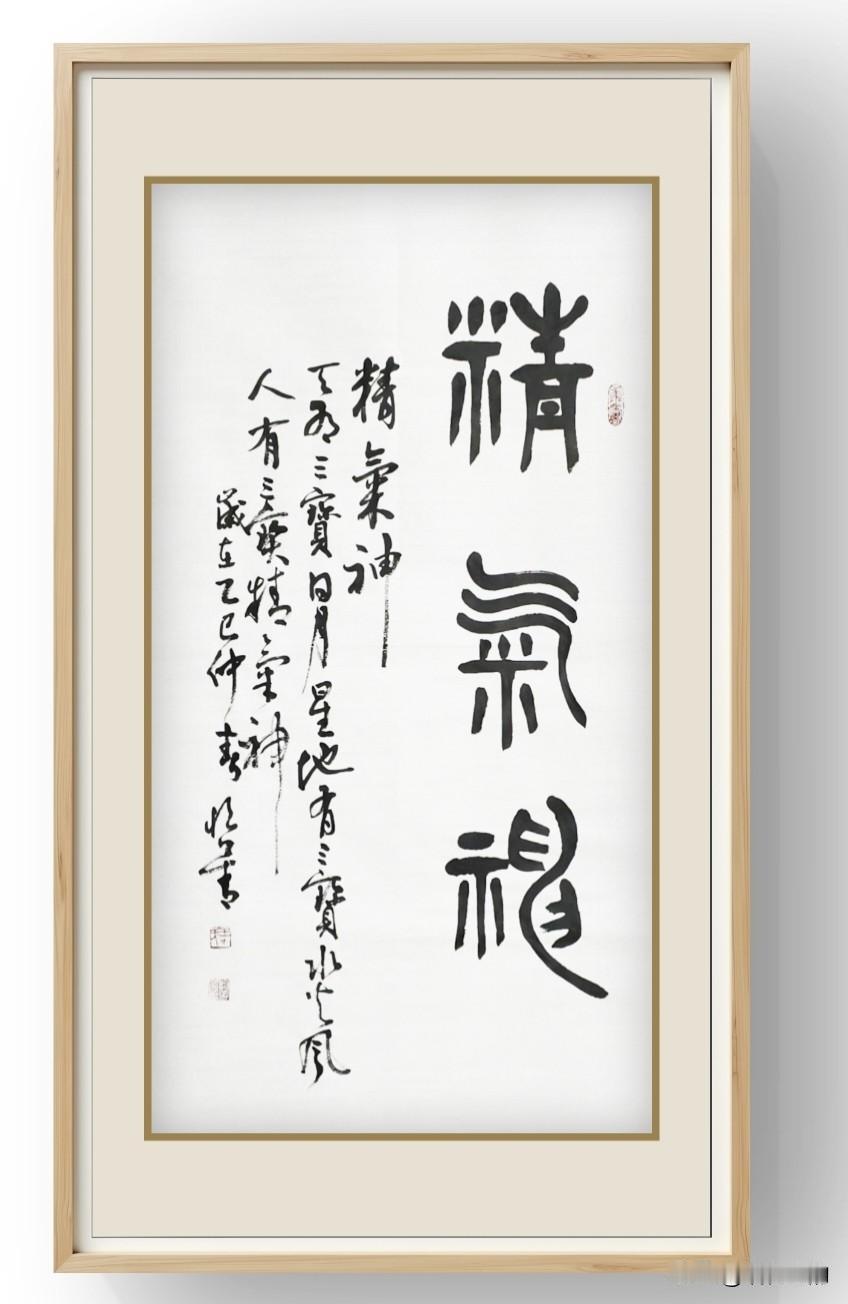 精氣神
精氣神
天有三寶日月星地有三寶水火風
人有三寶精氣神
歲在乙巳仲春